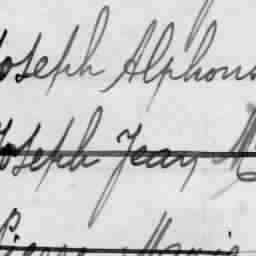 Joseph Alphons
Joseph Jean M
Pierre Marie